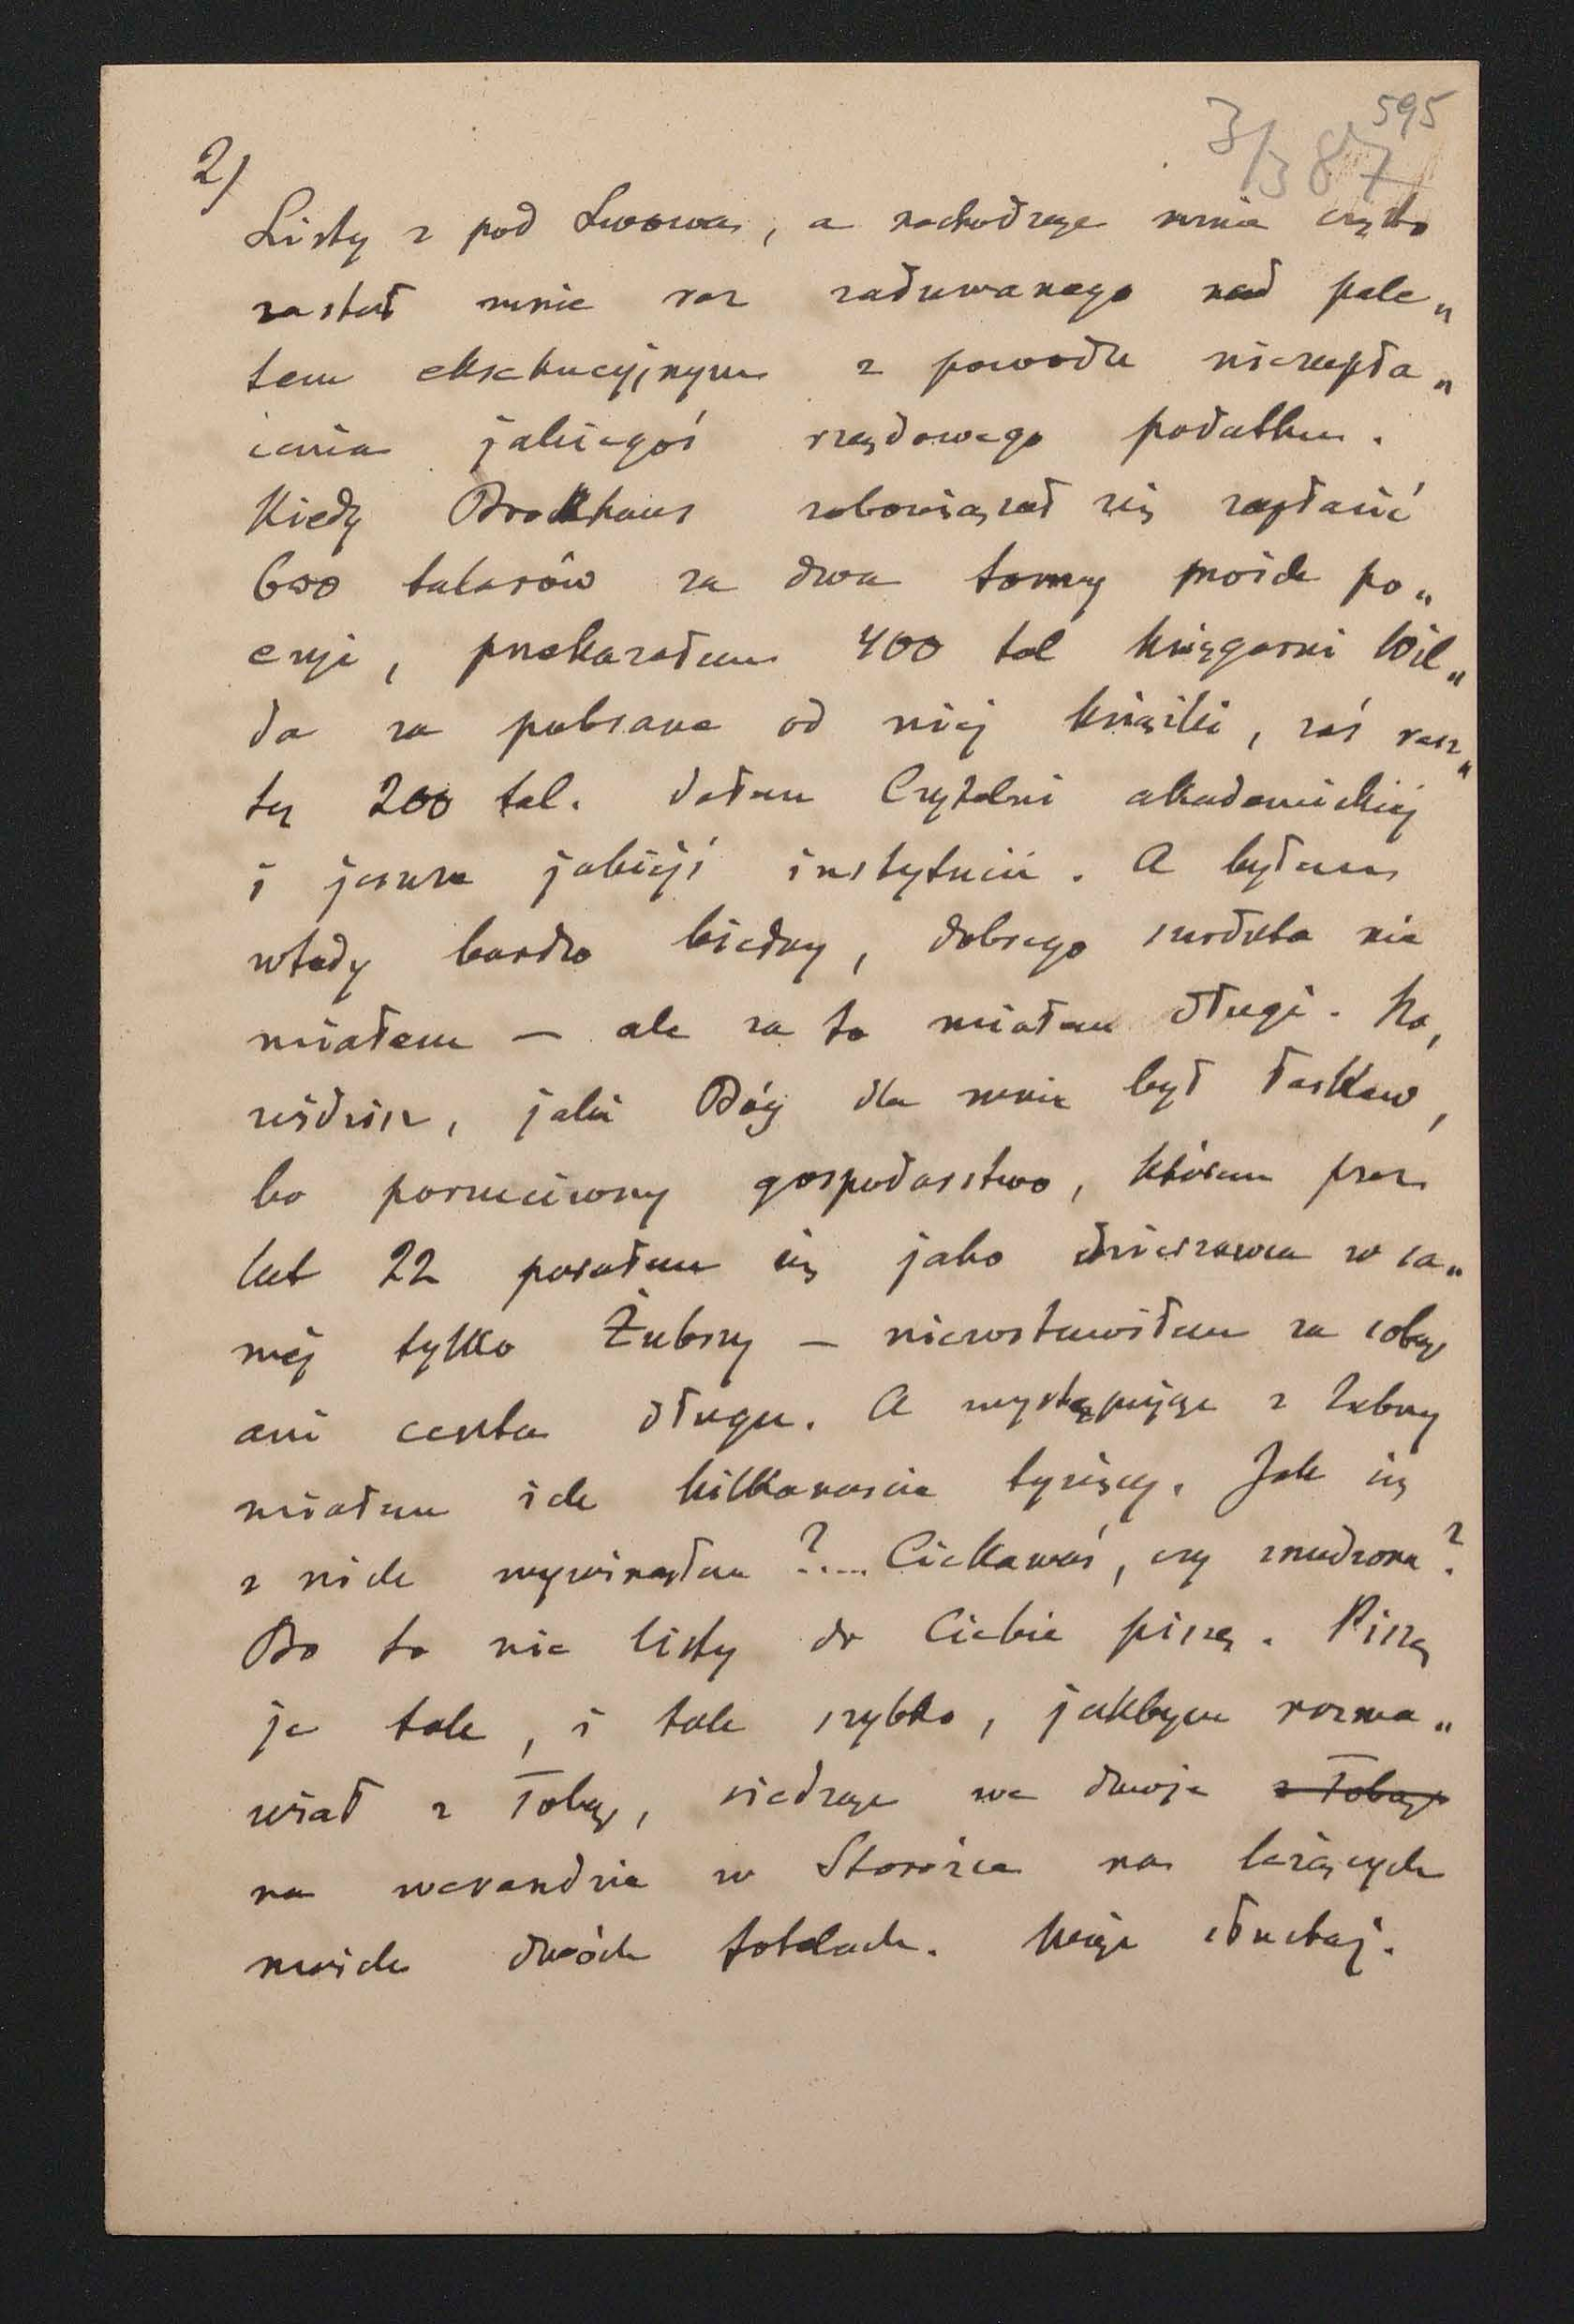 595
3/3 87
2/
Listy z pod Lwowa, a nachodząc mnie często
zastał mnie raz zadumanego nad pale„
tem eksekucyjnym z powodu niezapła„
cenia jakiegoś rządowego podatku.
Kiedy Brokhaus zobowiązał się zapłacić
600 talarów za dwa tomy moich po„
ezyi, przekazałem 400 tal księgarni Wil„
da za pobrane od niej książki, zaś resz„
tę 200 tal. dałem Czytelni akademickiej
i jeszcze jakiejś instytucii. A byłem
wtedy bardzo biedny, dobrego surduta nie
miałem — ale za to miałem długi. No,
widzisz, jaki Bóg dla mnie był łaskaw,
bo porzuciwszy gospodarstwo, którem przez
lat 22 parałem się jako dzierżawca w sa„
mej tylko Żubrzy — niezostawiłem za sobą
ani centa długu. A występując z Zubrzy
miałem ich kilkanaście tysięcy. Jak się
z nich wywinąłem?.... Ciekawaś, czy znudzona?
Bo to nie listy do Ciebie piszę. Piszę
je tak, i tak szybko, jakbym rozma„
wiał z Tobą, siedząc we dwoje z Tobą
na werandzie w Storożce na leżących
moich dwóch fotelach. Więc słuchaj.